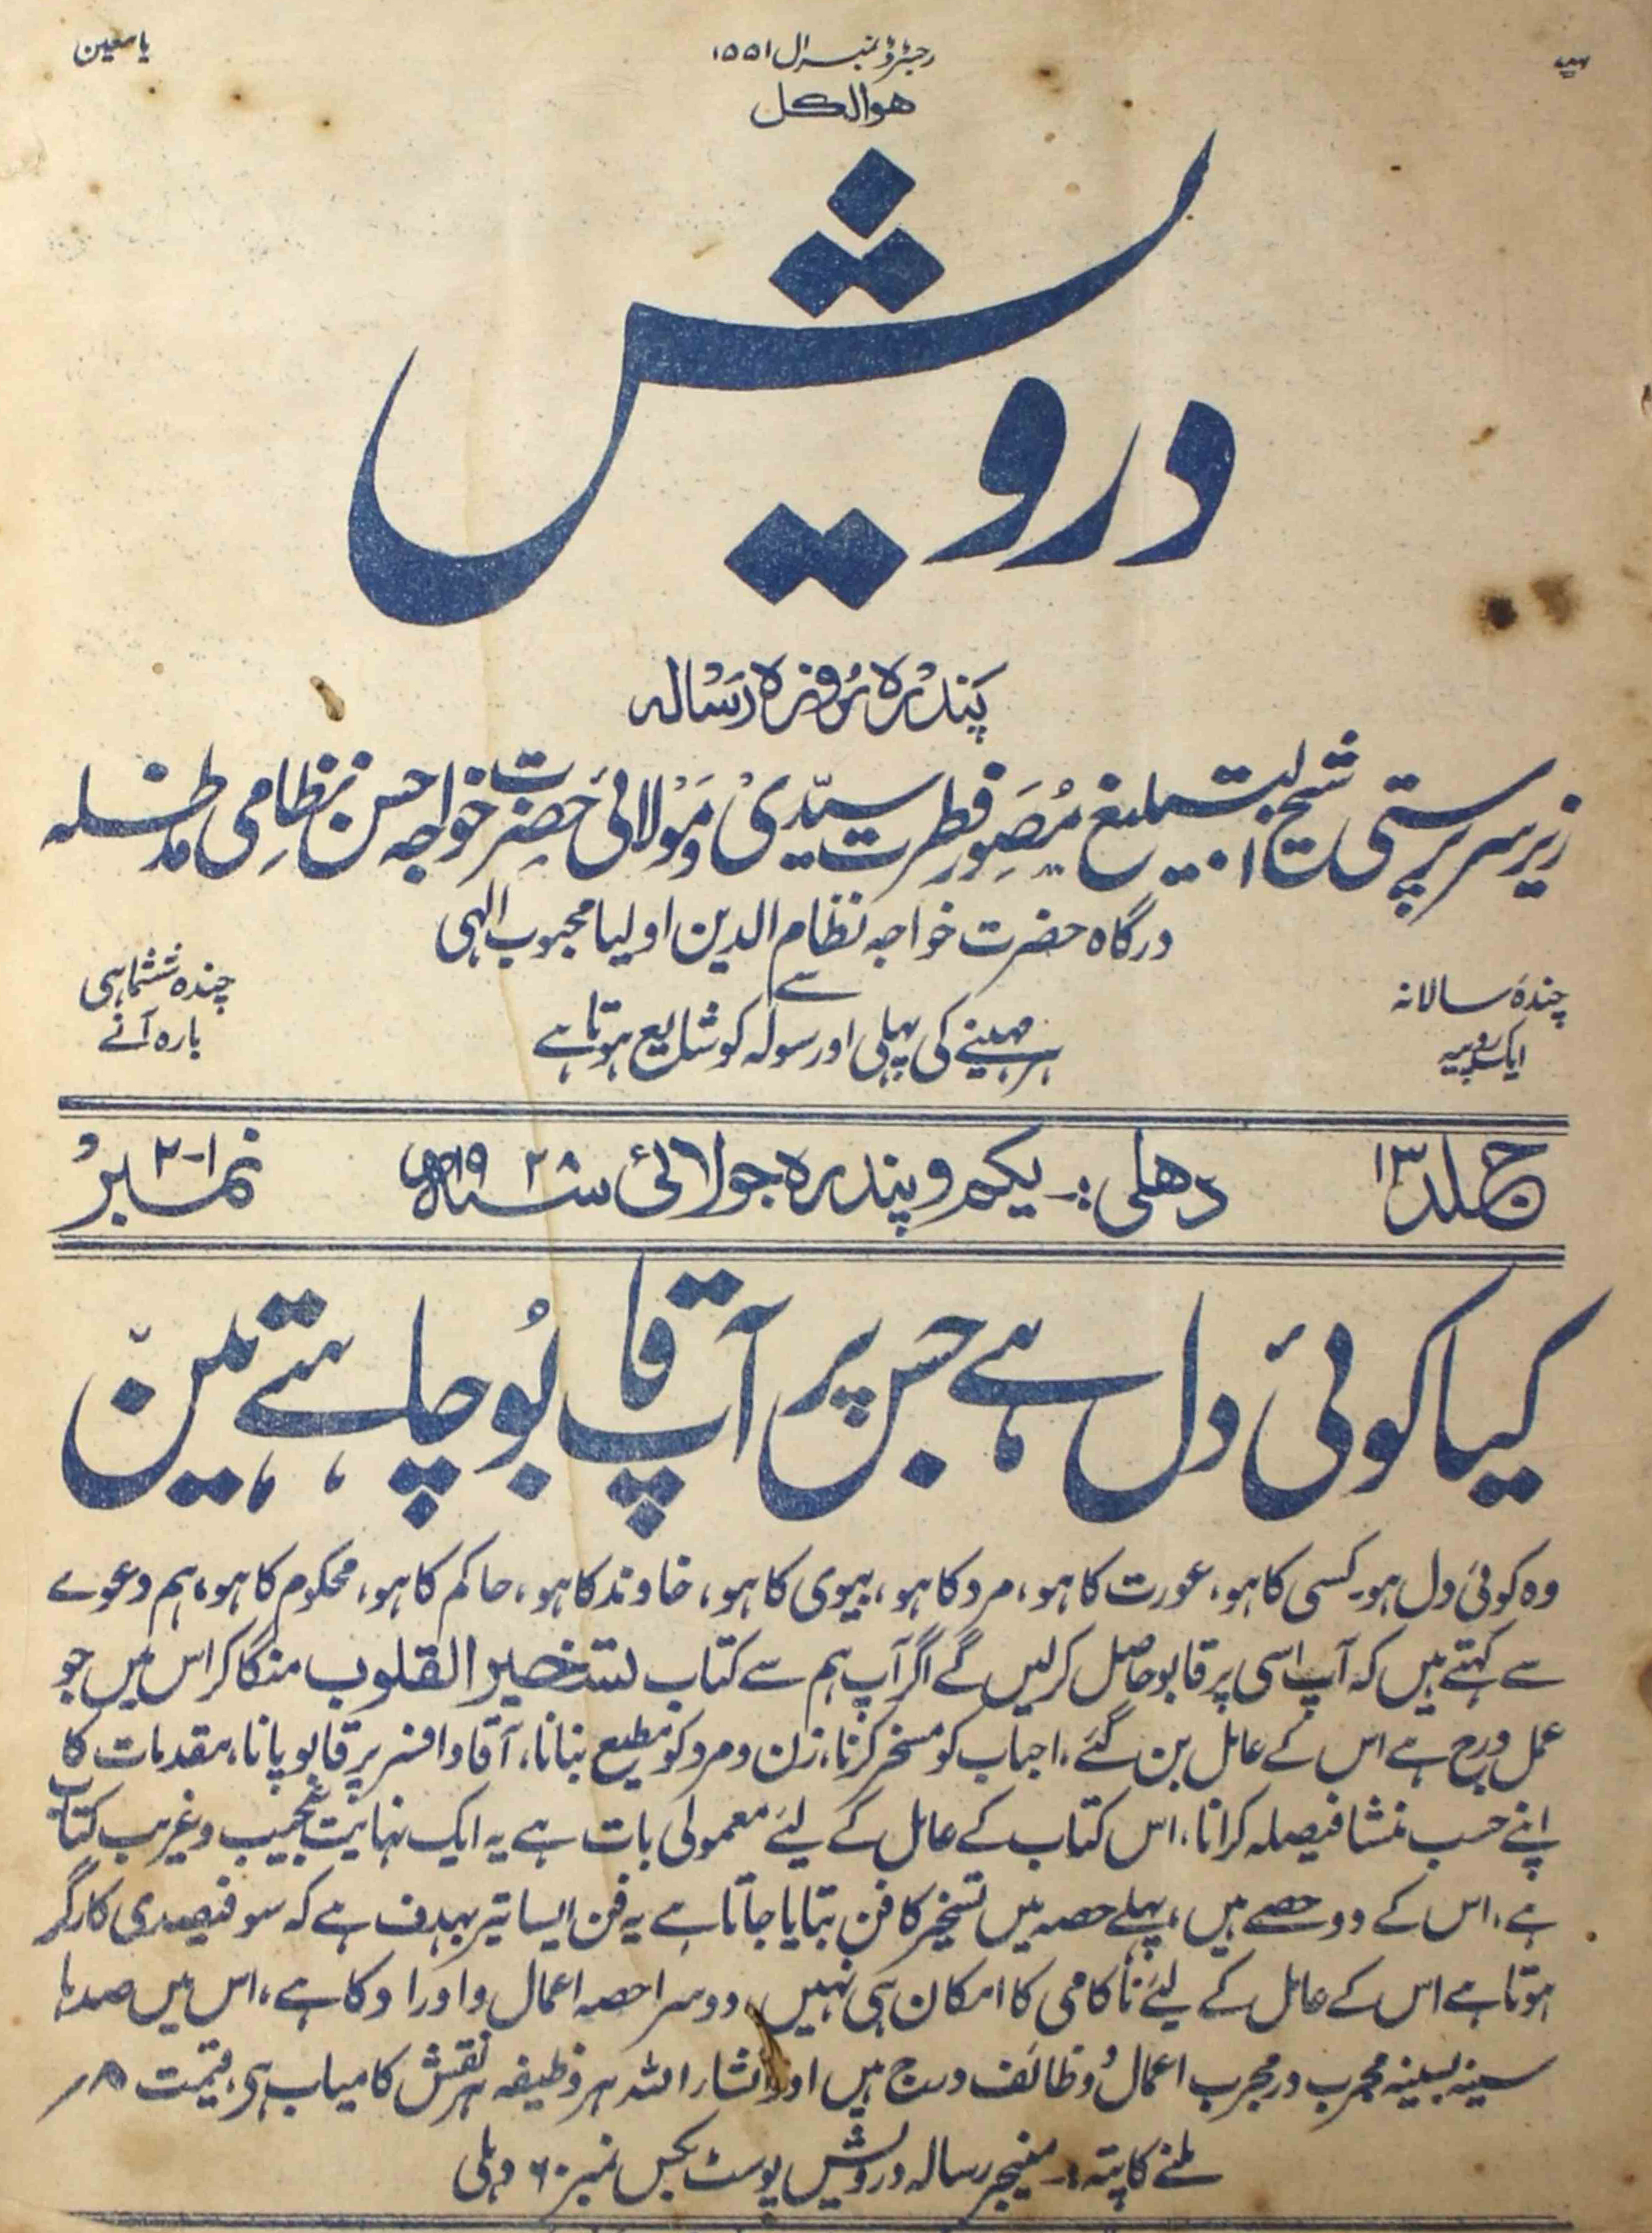 رجسٹرڈ نمبر ال ۱۵۵۱
یا معین
ھوالکل
درویش
پندرہ روزہ رسالہ
زیر سرپرستی شیخ التبلیغ مصور فطرت سیدی و مولائی حضرت خواجہ حسن نظامی مدظلہ
درگاہ حضرت خواجہ نظام الدین اولیا محبوب الہی
سے
چندہ سالانہ
ایک روپیہ
ہر مہینے کی پہلی اور سولہ کو شایع ہوتا ہے
چندہ ششماہی
بارہ آنے
جلد ۱۳
دھلی :- یکم و پندرہ جولائی سنہ ۱۹۲۸ء
نمبر ۱-۲
کیا کوئی دل ہے جس پر آپ قابو چاہتے ہیں
وہ کوئی دل ہو۔ کسی کا ہو، عورت کا ہو، مرد کا ہو، بیوی کا ہو، خاوند کا ہو، حاکم کا ہو، محکوم کا ہو، ہم دعوے
سے کہتے ہیں کہ آپ اسی پر قابو حاصل کرلیں گے اگر آپ ہم سے کتاب تسخیر القلوب منگا کر اس میں جو
عمل درج ہے اس کے عامل بن گئے، احباب کو مسخر کرنا، زن و مرد کو مطیع بنانا، آقا و افسر پر قابو پانا، مقدمات کا
اپنے حسب منشا فیصلہ کرانا، اس کتاب کے عامل کے لئے معمولی بات ہے یہ ایک نہایت عجیب و غریب کتاب
ہے، اس کے دو حصے ہیں، پہلے حصہ میں تسخیر کا فن بتایا جاتا ہے یہ فن ایسا تیر بہدف ہے کہ سو فیصدی کارگر
ہوتا ہے اس کے عامل کے لئے ناکامی کا امکان ہی نہیں، دوسرا حصہ اعمال و اوراد کا ہے، اس میں صدہا
سینہ بسینہ مجرب در مجرب اعمال و ظائف درج ہیں اور انشاء اللہ ہر وظیفہ ہر نقش کامیاب ہی، قیمت ۸؍
ملنے کا پتہ :- منیجر رسالہ درویش پوسٹ بکس نمبر ۶۰ دہلی